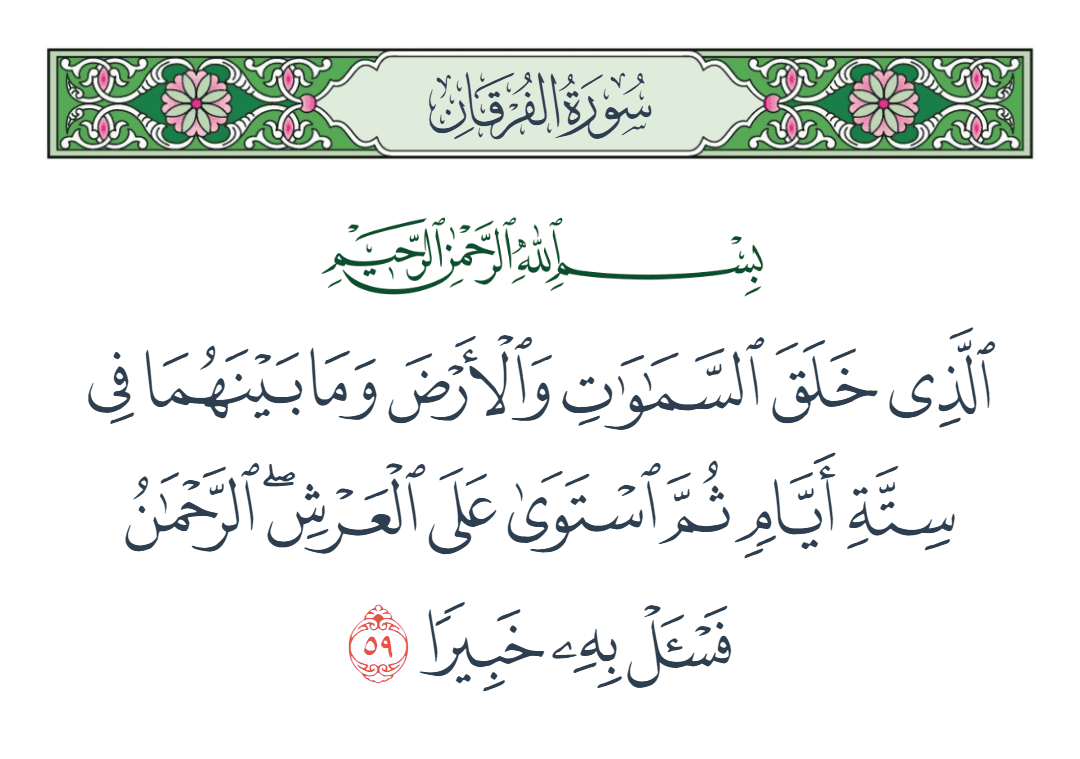 سُورَةُ الفُرْقَانِ
بِسْمِ ٱللَّهِ ٱلرَّحْمَٰنِ ٱلرَّحِيمِ
ٱلَّذِى خَلَقَ ٱلسَّمَٰوَٰتِ وَٱلْأَرْضَ وَمَا بَيْنَهُمَا فِى
سِتَّةِ أَيَّامٍ ثُمَّ ٱسْتَوَىٰ عَلَى ٱلْعَرْشِ ۖ ٱلرَّحْمَٰنُ
فَسْـَٔلْ بِهِۦ خَبِيرًا ٥٩